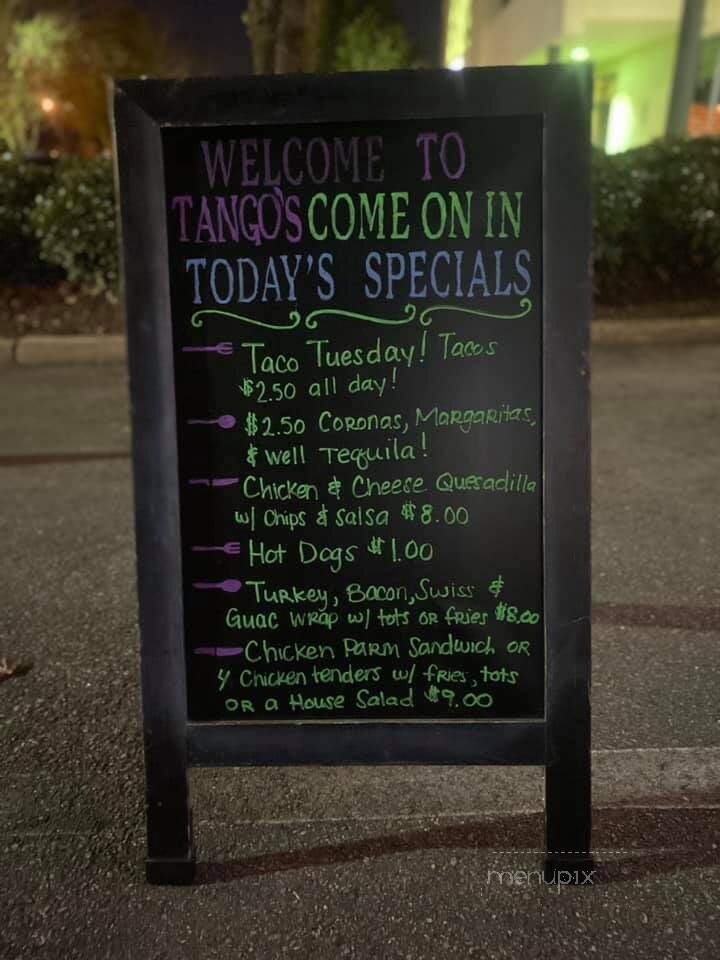 WELCOME TO
TANGO'S COME ON IN
TODAY'S SPECIALS
Taco Tuesday! Tacos
$2.50 all day!
$2.50 Coronas, Margaritas,
& well Tequila!
Chicken & Cheese Quesadilla
w/ Chips & Salsa $8.00
Hot Dogs $1.00
Turkey, Bacon, Swiss &
Guac Wrap w/ tots or fries $8.00
Chicken Parm Sandwich or
4 Chicken tenders w/ fries, tots
or a House Salad $9.00
menupix